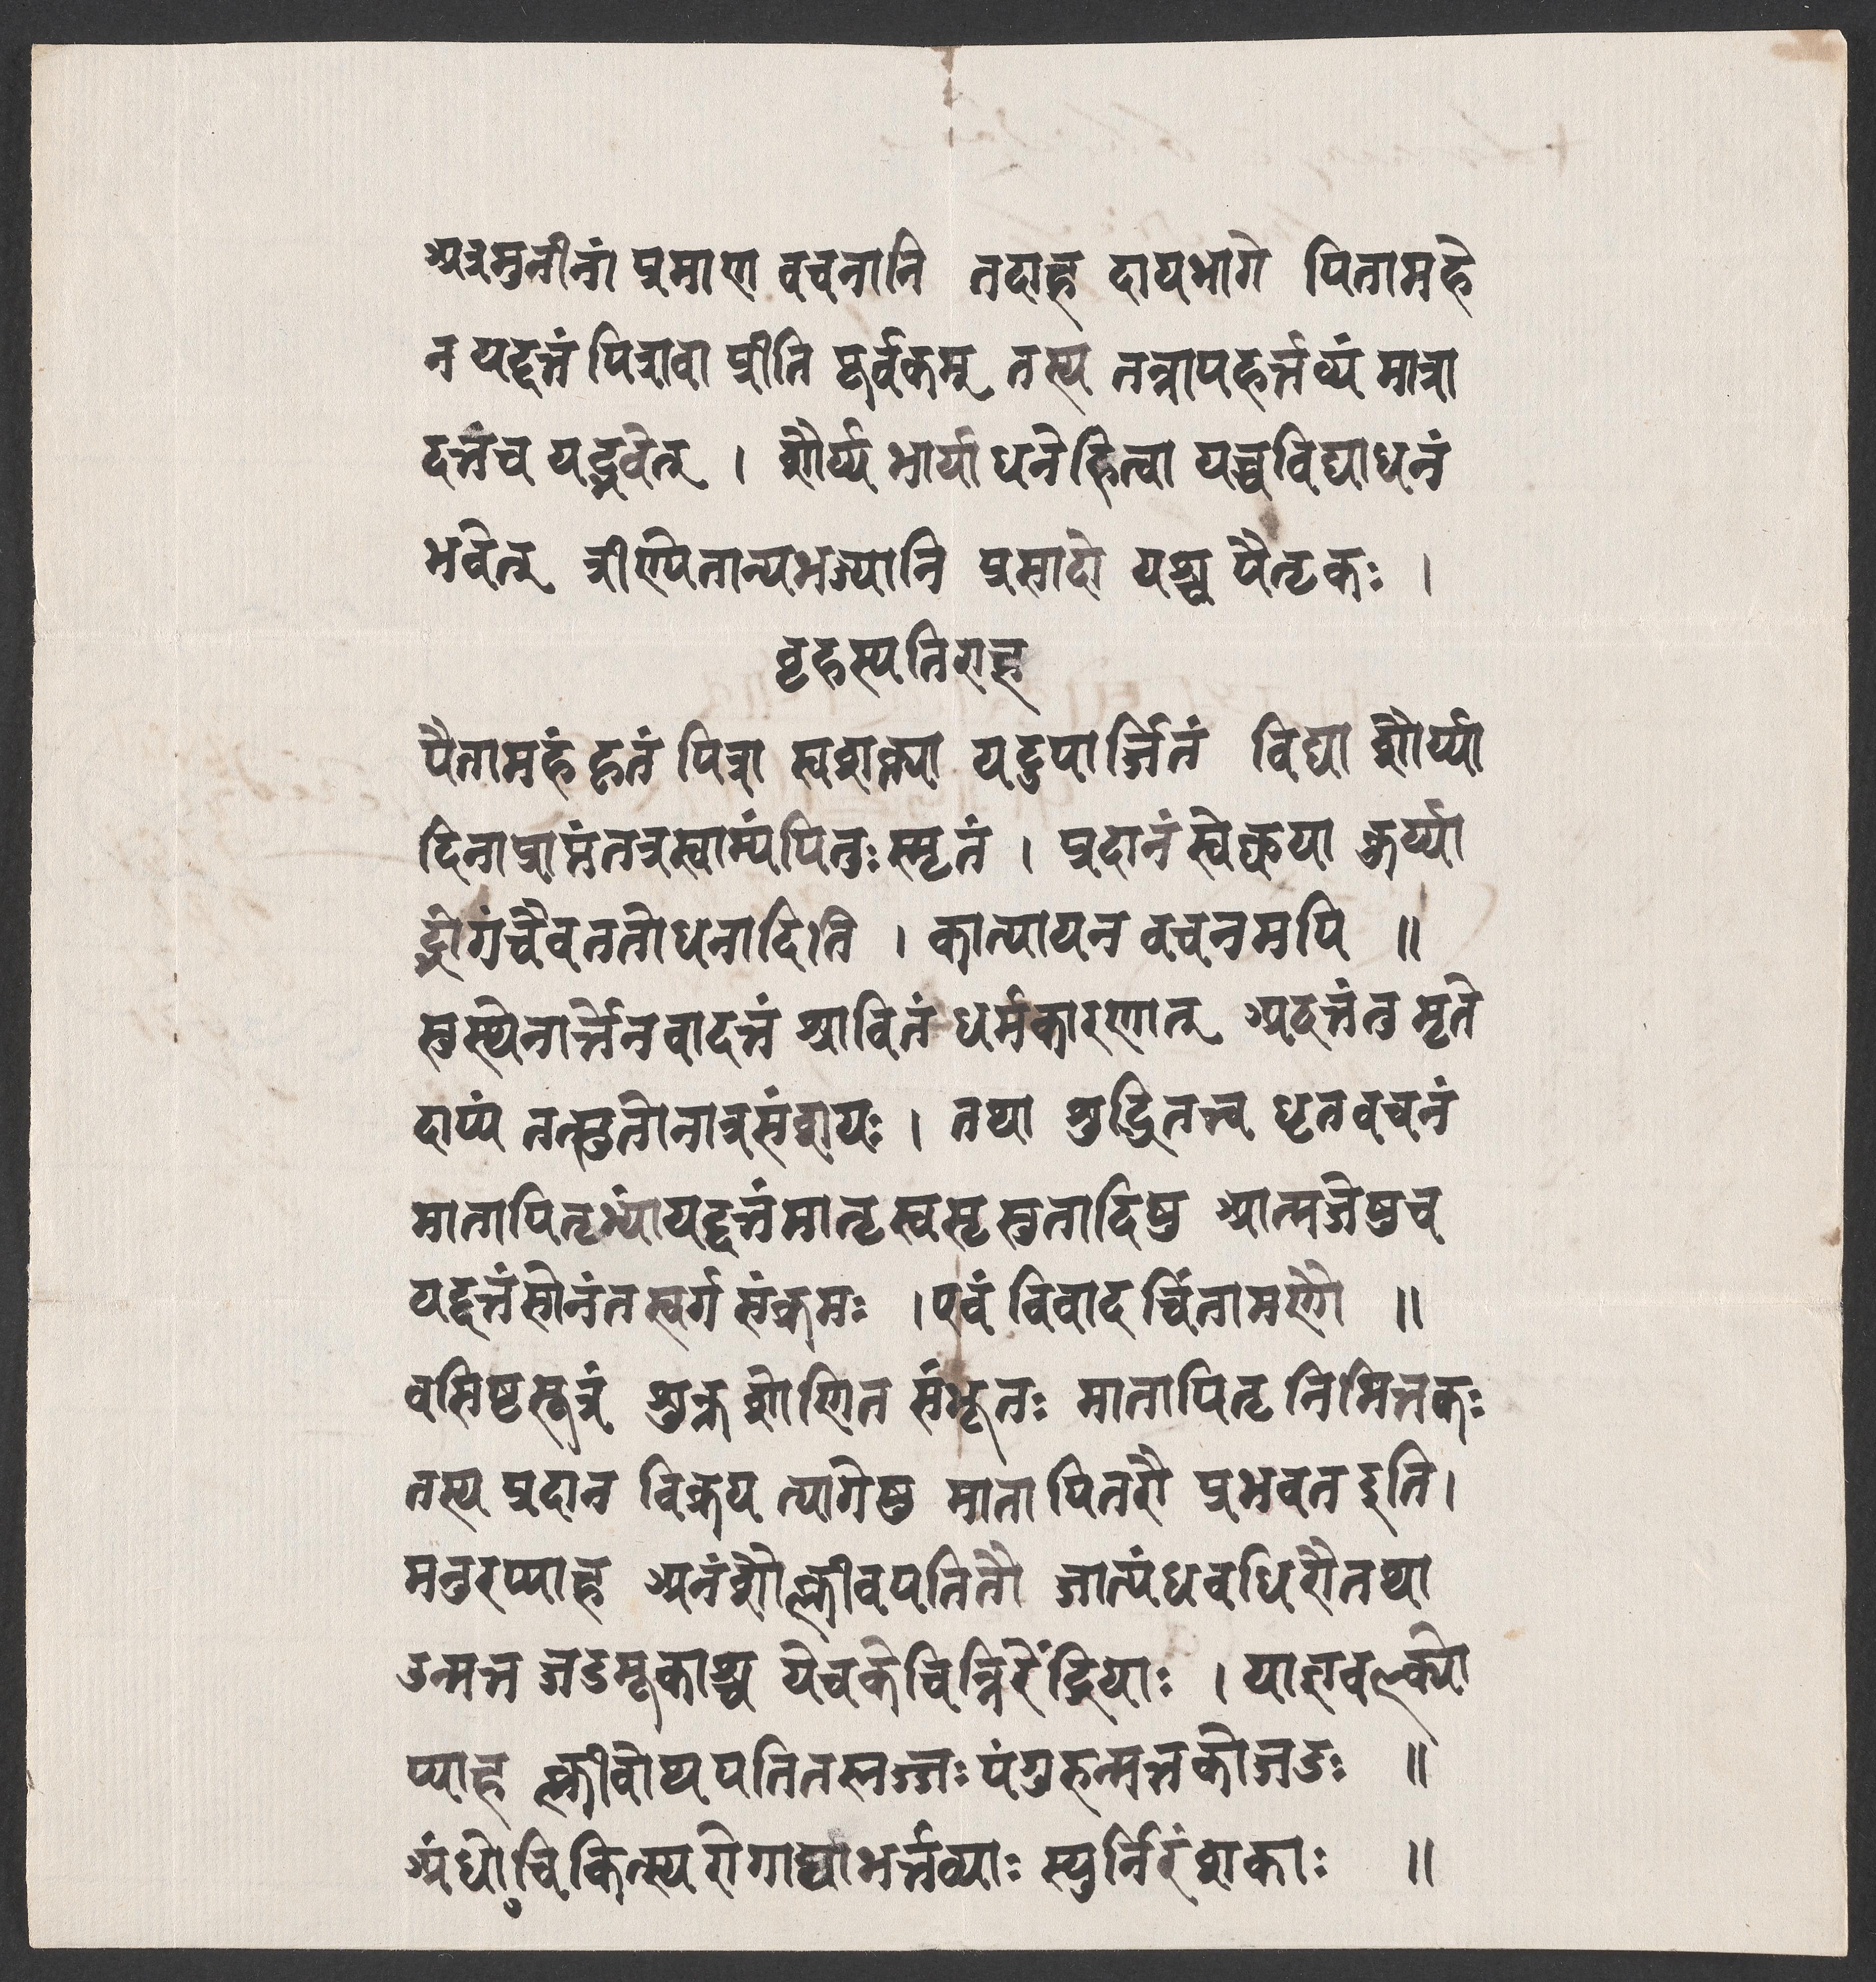 अत्रमुनीनां प्रमाण वचनानि तदाह दायभागे पितामहे
न यद्दत्तं पित्रावा प्रीति पूर्वकम् तस्य तन्नापहर्त्तव्यं मात्रा
दत्तंच यद्भवेत् । शौर्य्य भार्या धनेहित्वा यच्चविद्याधनं
भवेत् त्रीण्येतान्यभज्यानि प्रसादो यश्च पैतृकः ।
वृहस्पतिराह
पैतामहं हृतं पित्रा स्वशक्त्या यदुपार्ज्जितं विद्या शौर्य्या
दिनाप्राप्तंतत्रस्वाम्यंपितुःस्मृतं । प्रदानंस्वेछया कुर्य्या
द्भोगंचैवततोधनादिति । कात्यायन वचनमपि ॥
सुस्थेनार्त्तेनवादत्तं श्रावितं धर्मकारणात् अदत्त्वंतु मृते
दाप्यं तत्सुतोनात्रसंशयः । तथा शुद्धितत्त्व धृतवचनं
मातापितृभ्यांयद्दत्तंमातृस्वसृसुतादिषु आत्मजेषुच
यद्दत्तंसोनंतस्वर्ग संक्रमः । एवं विवाद चिंतामणौ ॥
वसिष्टसूत्रं शुक्र शोणित संभूतः मातापितृ निमित्तकः
तस्य प्रदान विक्रय त्यागेषु माता पितरौ प्रभवत इति।
मनुरप्याह अनंशौक्लीवपतितौ जात्यंधवधिरौतथा
उन्मत्त जडमूकाश्च येचकेचिन्निरेंद्रियाः । याज्ञवल्क्यो
प्याह क्लीवोथ पतितस्तज्जःपंगुरुन्मत्तकोजडः ॥
अंधोचिकित्स्यरोगाद्याभर्त्तव्याः स्युर्निरंशकाः ॥